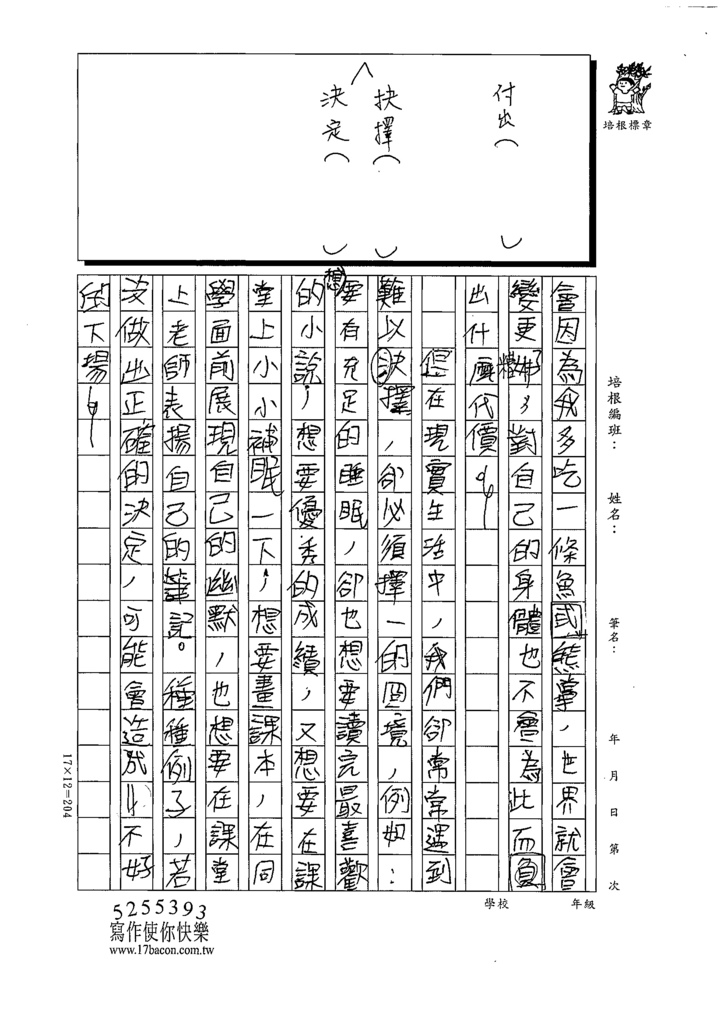 付出（　）
抉擇（　）
決定（　）
培根標章
培根編班：　姓名：　筆名：　年　月　日　第　次
會因為我多吃一條魚或熊掌，世界就會
變更糟，對自己的身體也不會為此而負
出什麼代價。
但在現實生活中，我們卻常常遇到
難以訣擇，卻必須擇一的困境，例如：
想要有充足的睡眠，卻也想要讀完最喜歡
的小說；想要優秀的成績，又想要在課
堂上小小補眠一下；想要畫課本，在同
學面前展現自己的幽默，也想要在課堂
上老師表揚自己的筆記。種種例子，若
沒做出正確的決定，可能會造成不好
的下場。
17×12=204
學校　年級
5255393
寫作使你快樂
www.17bacon.com.tw